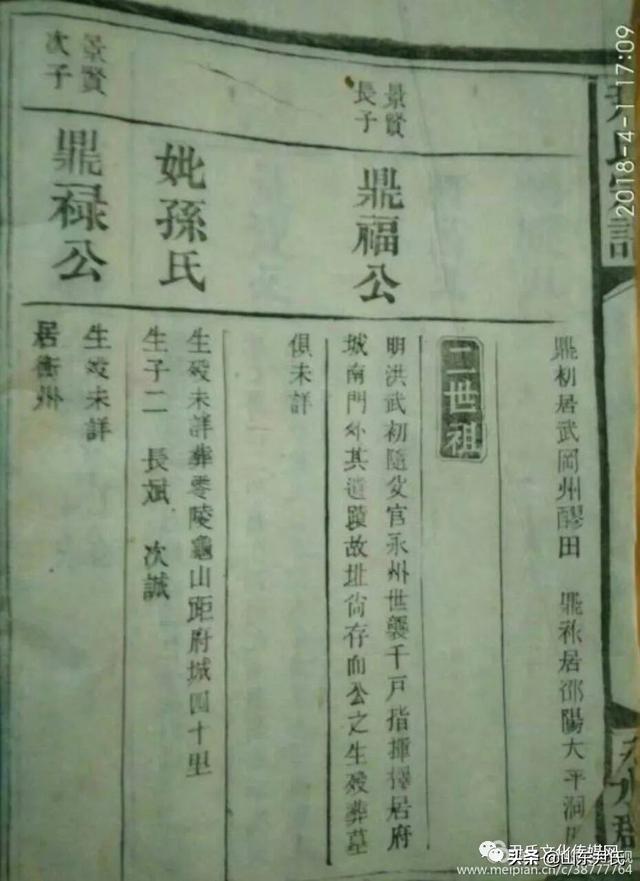 氏宗譜
天水郡
鼎初居武岡州醪田 鼎 居邵陽大平洞
二世祖
景賢
長子
鼎福公
明洪武初隨父官永州世襲千戶指揮擇居府
城南門外其遺蹟故址尙存而公之生歿葬墓
俱未詳
妣孫氏
生歿未詳葬零陵龜山距府城四十里
生子二 長斌 次誠
景賢
次子
鼎祿公
生歿未詳
居衡州
2018-4-1 17:09
尹氏文化传媒网
头条 @山东尹氏
www.meipian.cn/c/38777764